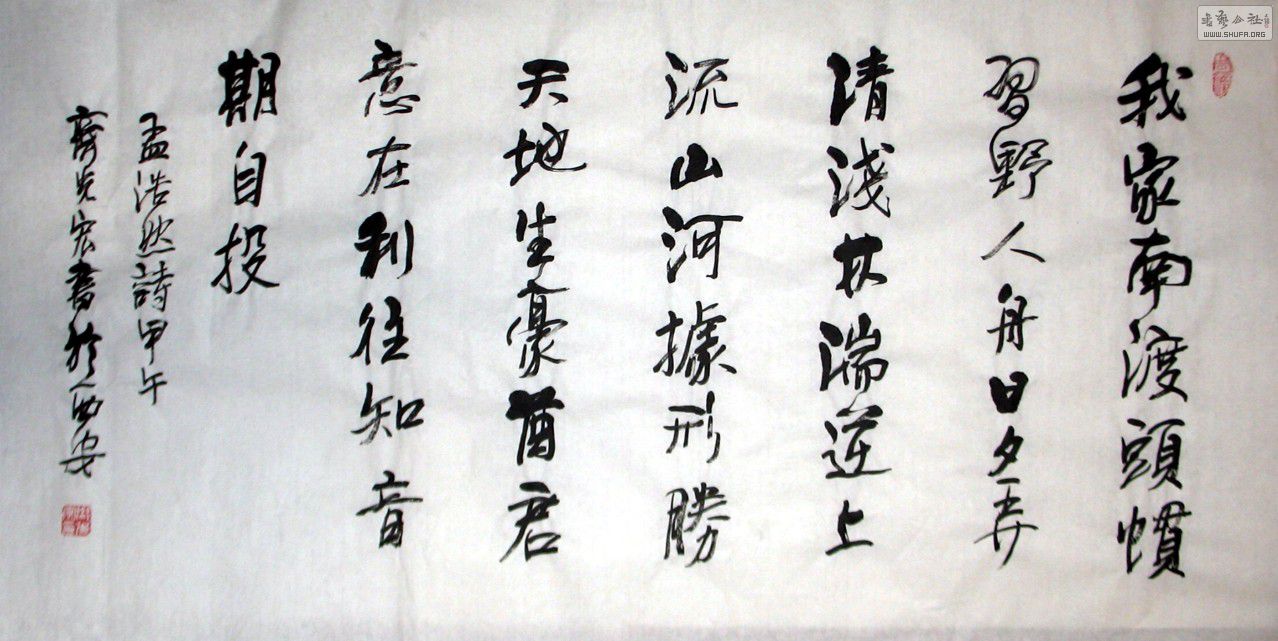 我家南渡頭慣
習野人舟日夕弄
清淺林湍逆上
流山河據形勝
天地生豪酋君
意在利往知音
期自投
孟浩然詩甲午
齊光宏書於西安
書藝公社
WWW.SHUFA.ORG